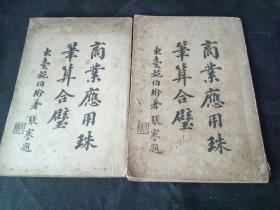 商業應用珠
筆算合璧
東臺施伯珩著 張謇題
商業應用珠
筆算合璧
東臺施伯珩著 張謇題